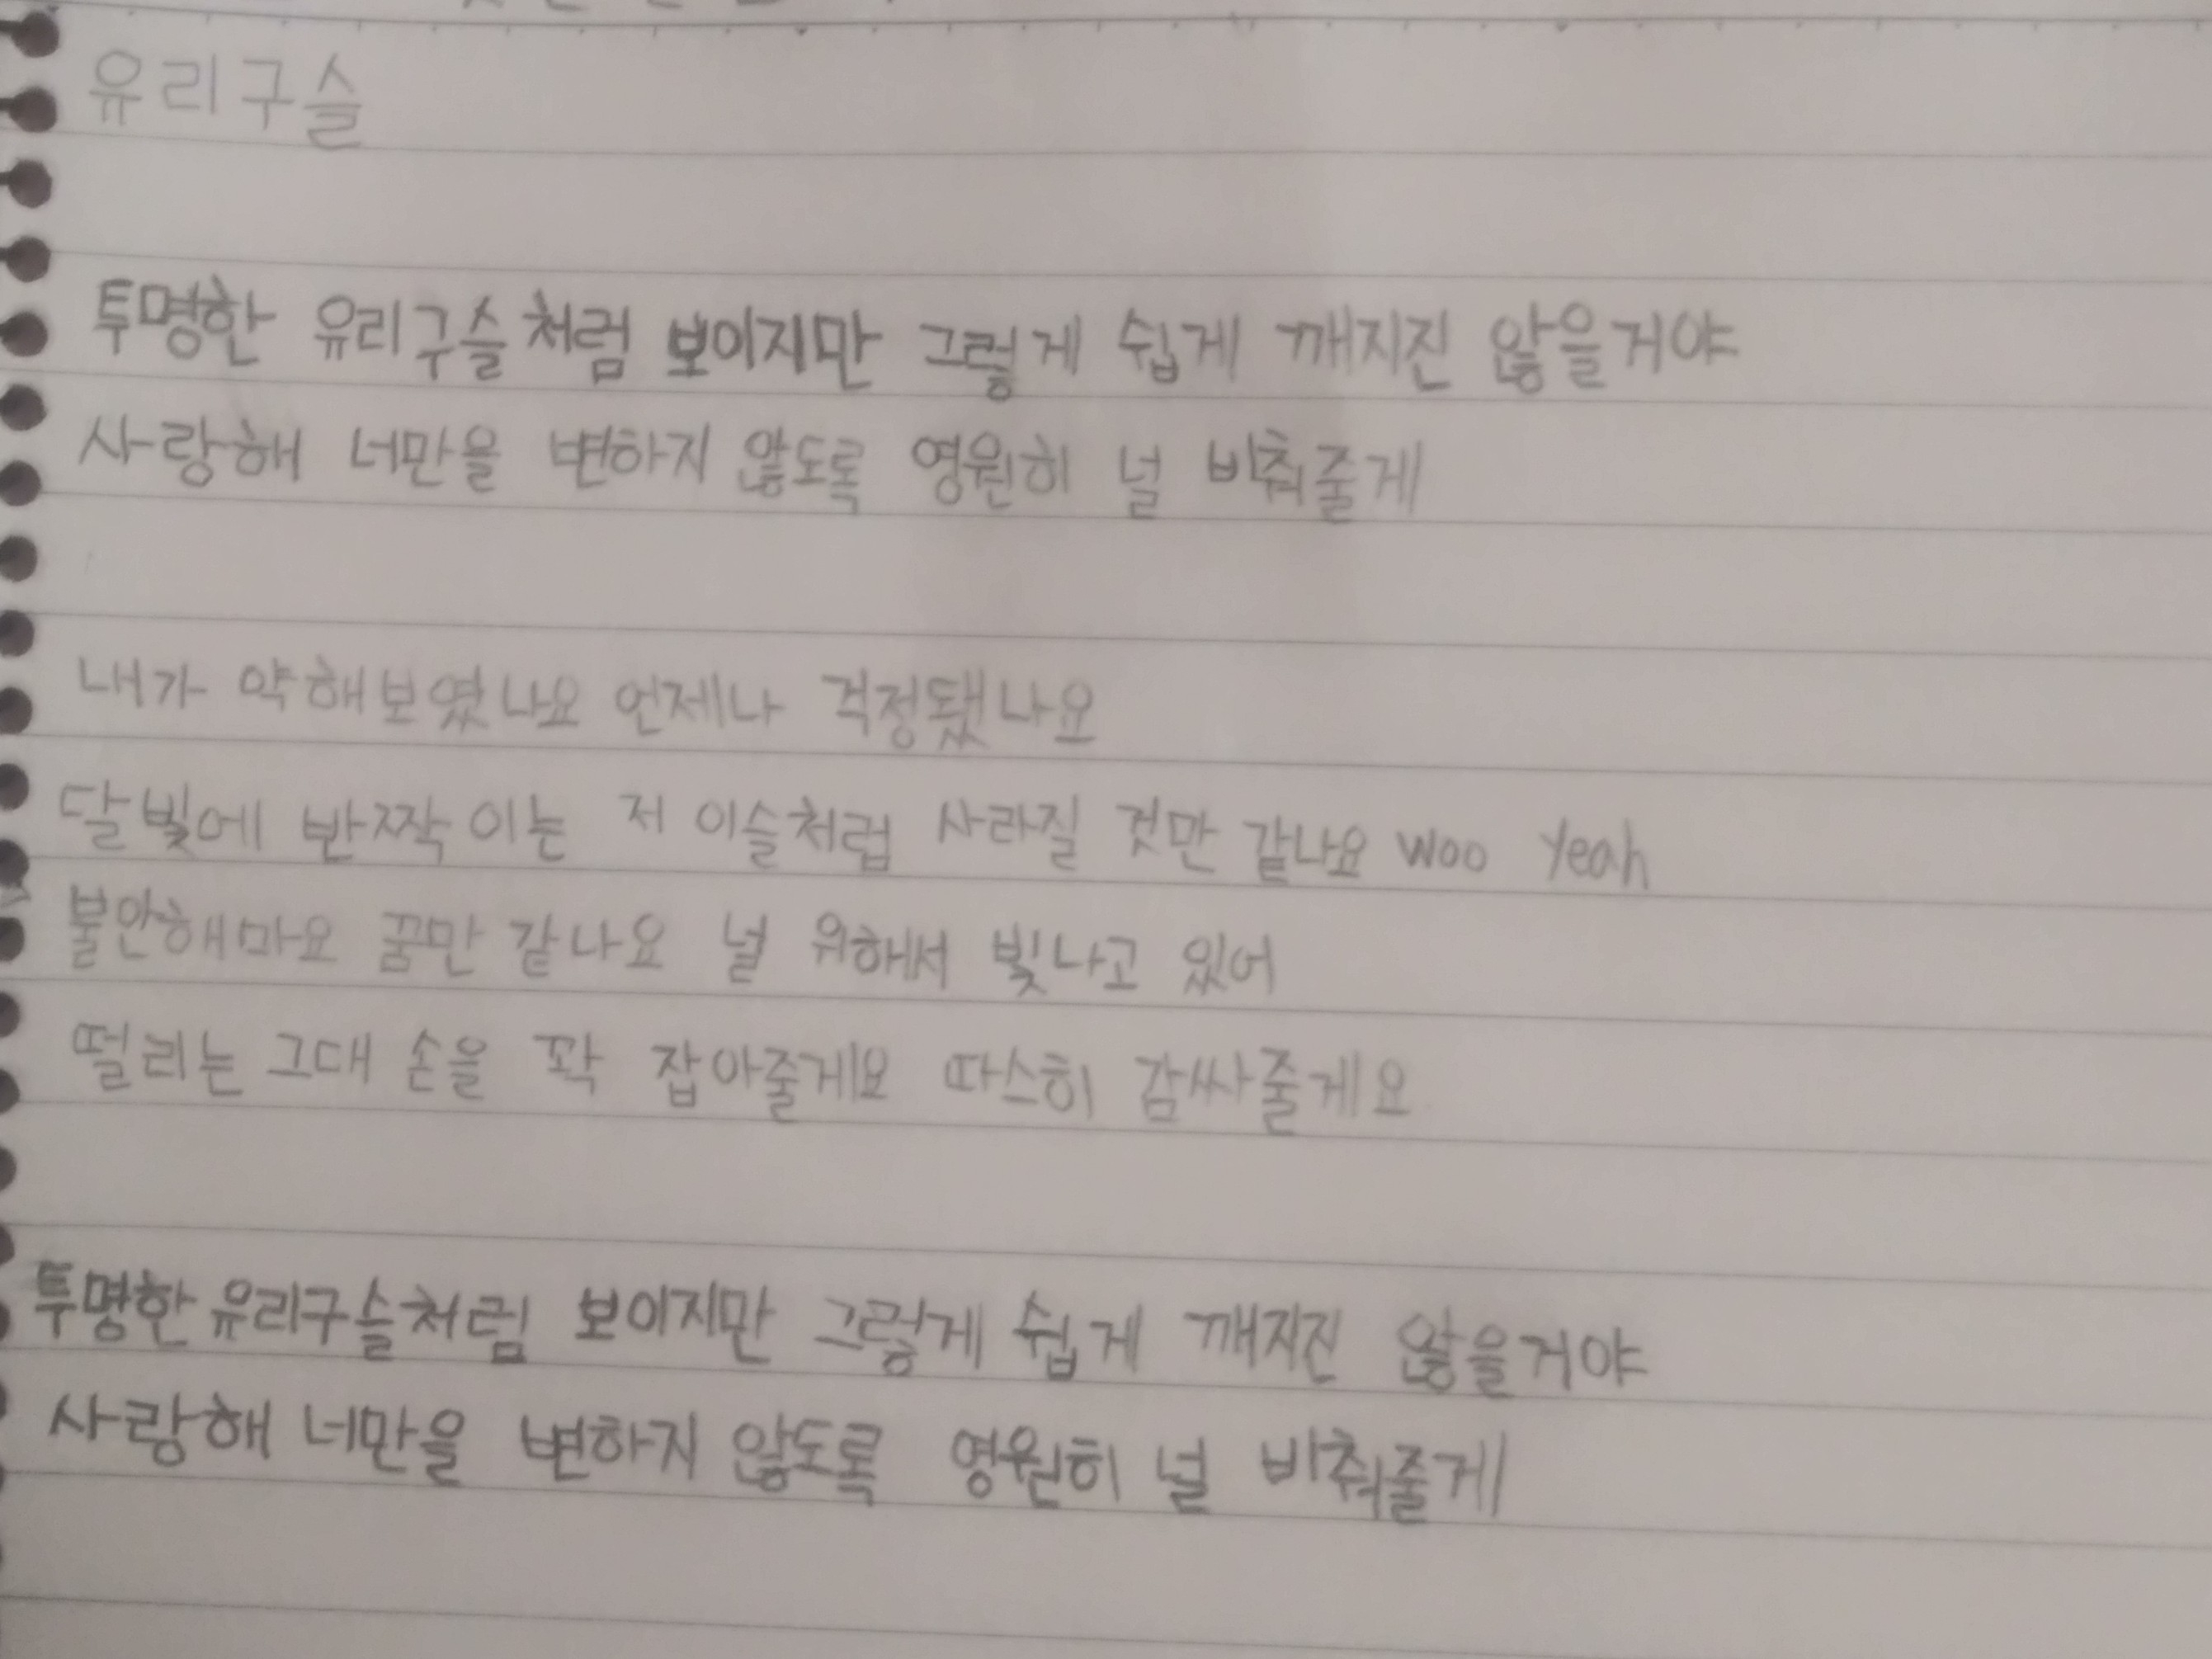 유리구슬
투명한 유리구슬처럼 보이지만 그렇게 쉽게 깨지진 않을거야
사랑해 너만을 변하지 않도록 영원히 널 비춰줄게
내가 약해보였나요 언제나 걱정됐나요
달빛에 반짝이는 저 이슬처럼 사라질 것만 같나요 woo yeah
불안해마요 꿈만 같나요 널 위해서 빛나고 있어
떨리는 그대 손을 꽉 잡아줄게요 따스히 감싸줄게요
투명한 유리구슬처럼 보이지만 그렇게 쉽게 깨지진 않을거야
사랑해 너만을 변하지 않도록 영원히 널 비춰줄게